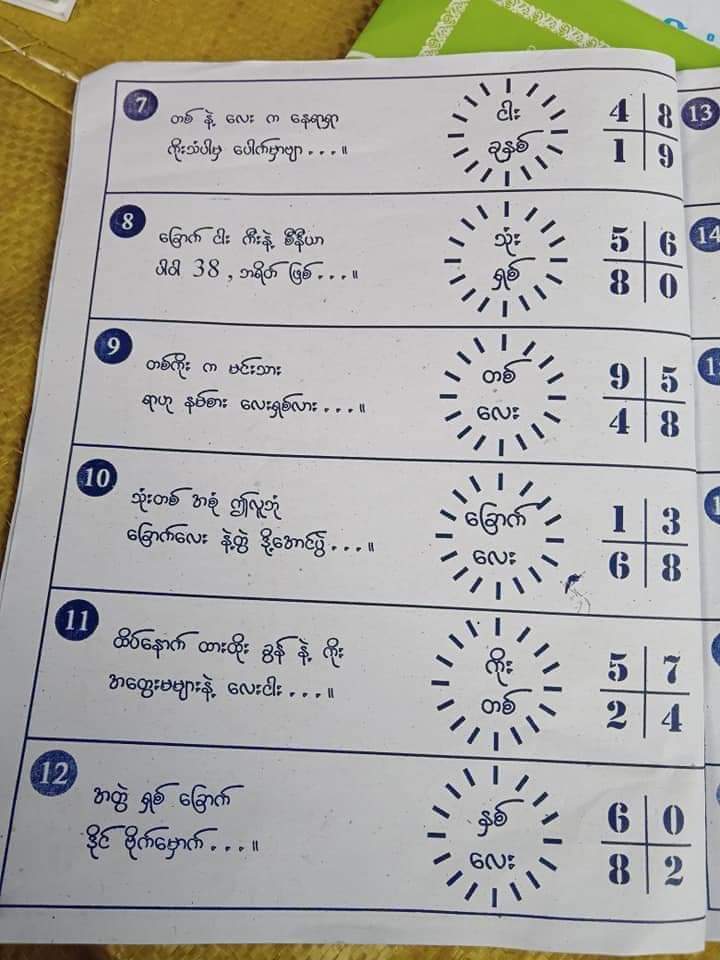 7
တစ် နဲ့ လေး က နေရာရှာ
ကိုးသံပါမှ ပေါက်မှာဗျာ . . . ။
ငါး
ခုနှစ်
4 8
1 9
8
ခြောက် ငါး ကီးနဲ့ စီနီယာ
ပါဝါ 38 , ဘရိတ် ဖြစ် . . . ။
သုံး
ရှစ်
5 6
8 0
9
တစ်ကိုး က မင်းသား
ရာဟု နမ်စား လေးရှစ်လား . . . ။
တစ်
လေး
9 5
4 8
10
သုံးတစ် အစုံ ဤလူဘုံ
ခြောက်လေး နဲ့တွဲ ဒို့အောင်ပွဲ . . . ။
ခြောက်
လေး
1 3
6 8
11
ထိပ်နောက် ထားထိုး ခွန် နဲ့ ကိုး
အတွေးမများနဲ့ လေးငါး . . . ။
ကိုး
တစ်
5 7
2 4
12
အတွဲ ရှစ် ခြောက်
ဒိုင် ဗိုက်မှောက် . . . ။
နှစ်
လေး
6 0
8 2
13
14